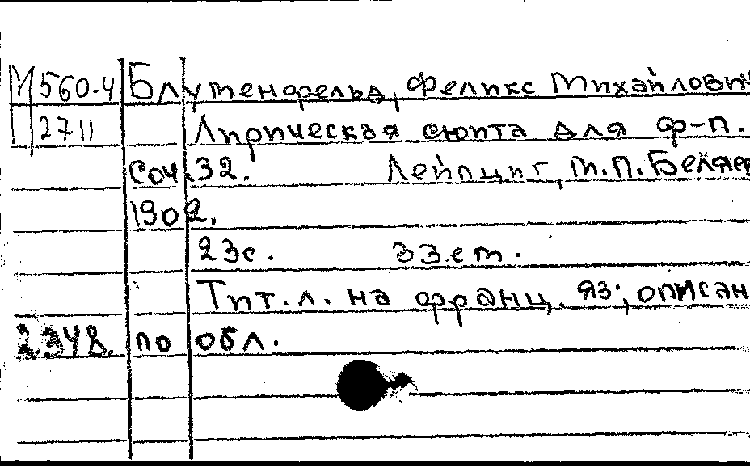 М 560-4 Блуменфельд, Феликс Михайлович
2711 Лирическая сюита для ф-п.
Соч. 32. Лейпциг, М.П. Беляев
1902.
23с. 33см.
Тит.л. на франц. яз; описан
2348. по обл.